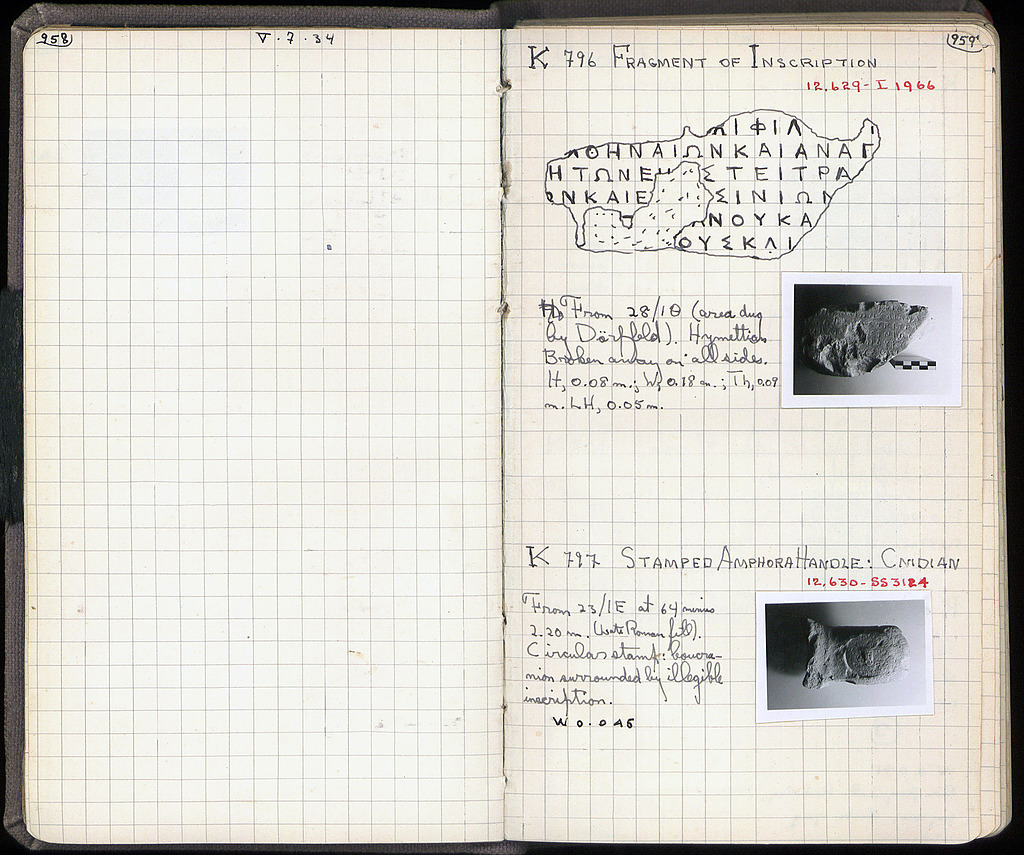 958
V · 7 · 34
959
K 796 FRAGMENT OF INSCRIPTION
12,629 - I 1966
ΩΙΦΙΛ
ΑΘΗΝΑΙΩΝΚΑΙΑΝΑΓ
ΗΤΩΝΕΗ ΣΤΕΙΤΡΑ
ΩΝΚΑΙΕ ΣΙΝΙΩΝ
ΝΟΥΚΑ
ΟΥΣΚΛΙ
From 28/ΙΘ (area dug
by Dörpfeld). Hymettian
Broken away on all sides.
H, 0.08 m.; W, 0.18 m.; Th, 0.09
m. LH, 0.05 m.
K 797 STAMPED AMPHORA HANDLE: CNIDIAN
12,630 - SS 3124
From 23/ΙΕ at 64 minus
2.20 m. (Late Roman fill).
Circular stamp: boucra-
nion surrounded by illegible
inscription.
W 0.045